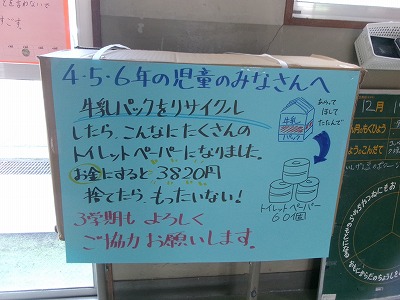 4・5・6年の児童のみなさんへ
牛乳パックをリサイクル
したら、こんなにたくさんの
トイレットペーパーになりました。
お金にすると3820円
捨てたら、もったいない!
3学期も よろしく
ご協力お願いします。
牛乳
パック
あらって
ほして
たたんで
トイレットペーパー
60個
12月